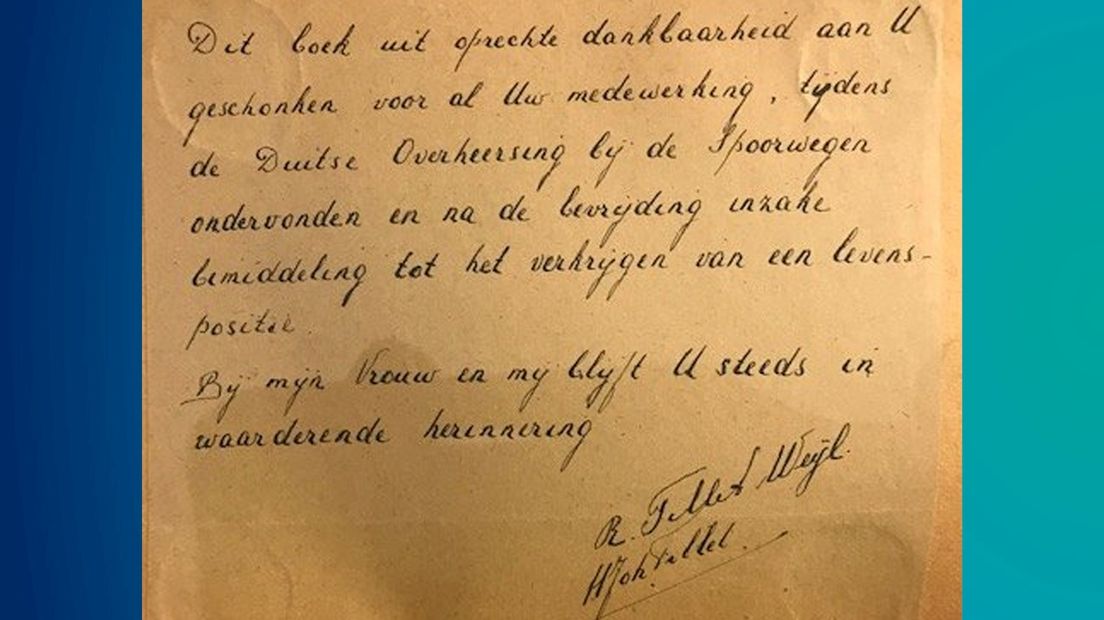 Dit boek uit oprechte dankbaarheid aan U
geschonken voor al Uw medewerking, tijdens
de Duitse Overheersing bij de Spoorwegen
ondervonden en na de bevrijding inzake
bemiddeling tot het verkrijgen van een levens-
positie.
Bij mijn Vrouw en mij blijft U steeds in
waarderende herinnering
R. Weijl.